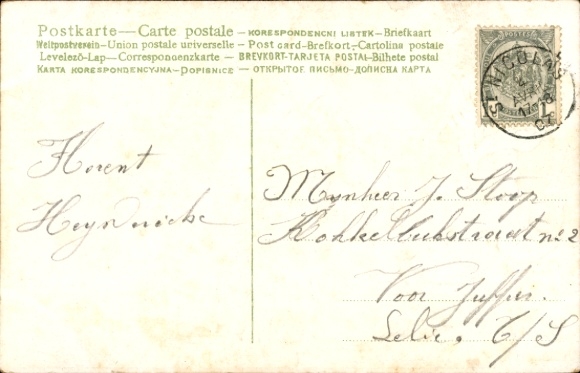 Postkarte — Carte postale — KORESPONDENCNI LISTEK — Briefkaart
Weltpostverein — Union postale universelle — Post card - Brefkort - Cartolina postale
Levelező-Lap — Correspondenzkarte — BREVKORT - TARJETA POSTAL - Bilhete postal
KARTA KORESPONDENCYJNA — DOPISNICE — ОТКРЫТОЕ ПИСЬМО — ДОПИСНА КАРТА
ST NICOLAS
07
Florent
Mynheer J. Stoop
no 2
Voor Juffer.